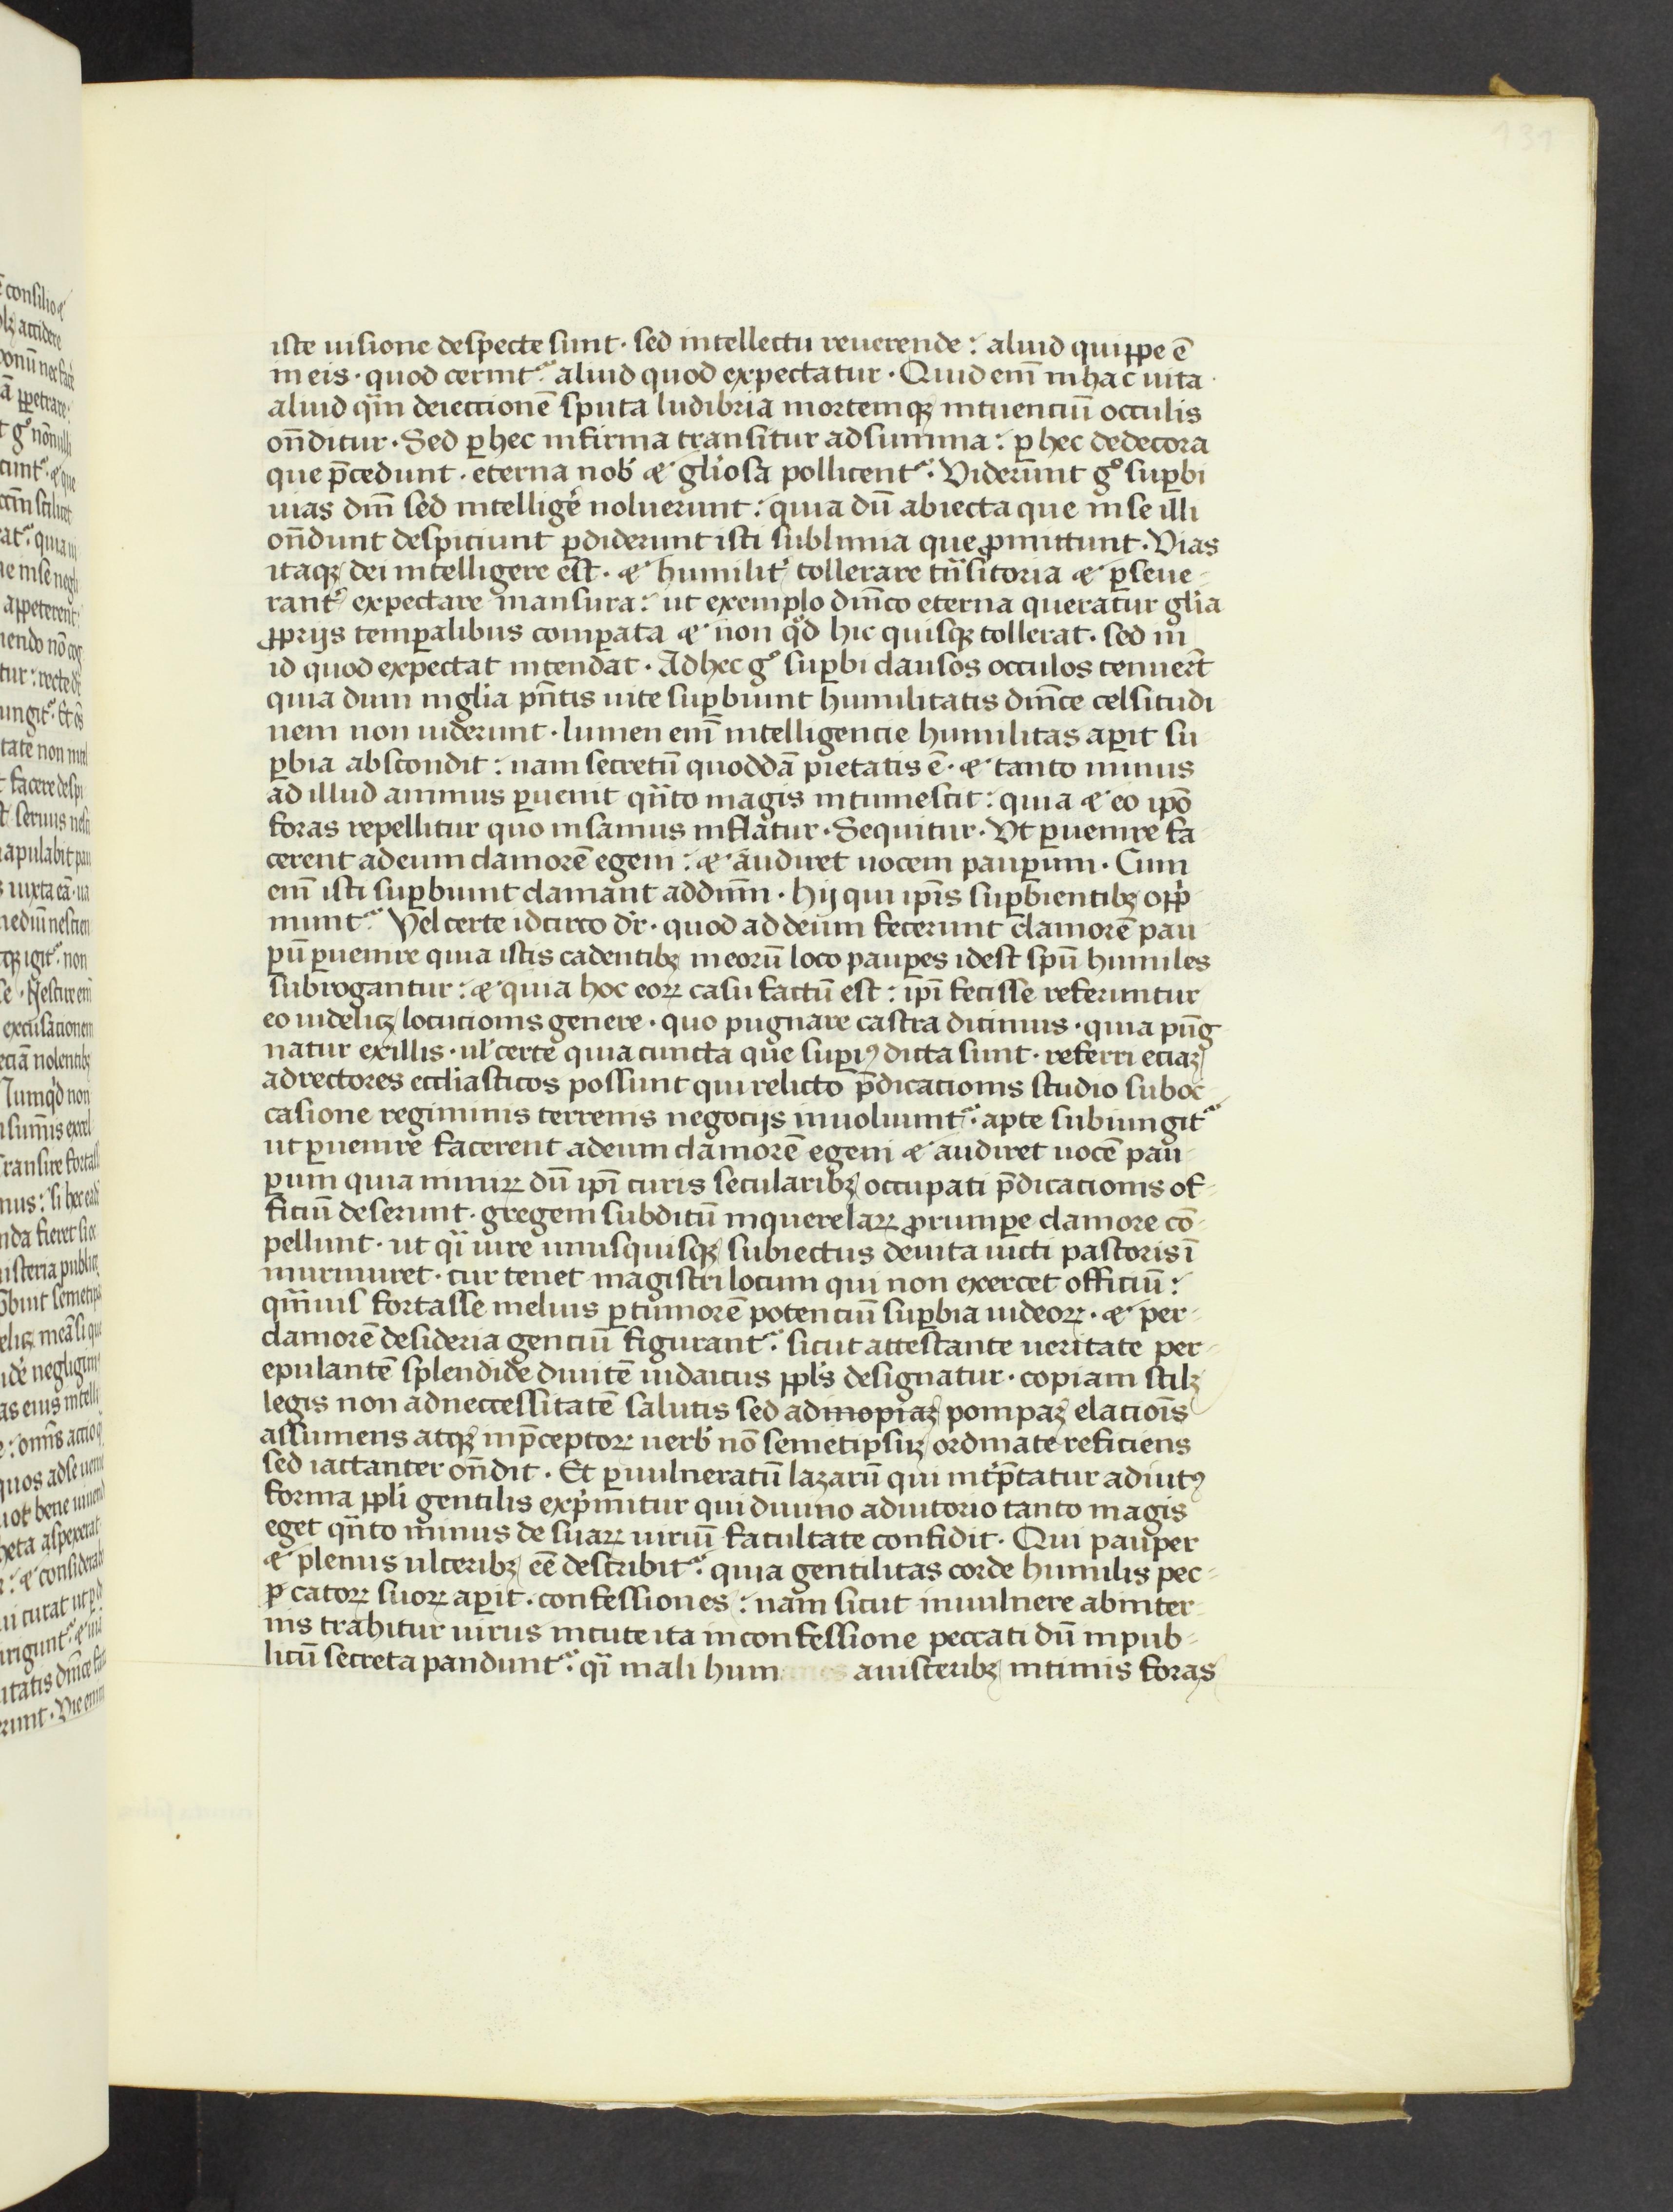 131
iste uisione despecte sunt · sed intellectu reuerende : aliud quippe ē
in eis · quod cernit᷑ aliud quod expectatur · Quid enī in hac uita ·
aliud qīn deieccionē sputa ludibria mortemqꝫ intuenciū occulis
oñditur · Sed ꝑ hec infirma transitur ad summa : ꝑ hec dedecora
que p̄cedunt · eterna nob̓ ⁊ gl̓iosa pollicent᷑ · Viderunt gͦ suꝑbi
uias dnī sed intellige᷑ noluerunt : quia dū abiecta que in se illi
oñdunt despiciunt ꝑdiderunt isti sublimia que ꝓmittunt · Vias
itaqꝫ dei intelligere est · ⁊ humilit᷑ tollerare tn̄sitoria ⁊ ꝑseue-
rant᷑ expectare mansura : ut exemplo dnīco eterna queratur gl̓ia
ꝓprijs temꝑalibus comꝑata ⁊ non qͦd hic quisqꝫ tollerat · sed in
id quod expectat intendat · Ad hec gͦ suꝑbi clausos occulos tenuer̄t
quia dum in gl̓ia pn̄tis uite suꝑbiunt humilitatis dnīce celsitudi
nem non uiderunt · lumen enī intelligencie humilitas aꝑit su-
ꝑbia abscondit : nam secretū quoddā pietatis ē · ⁊ tanto minus
ad illud animus ꝑuenit qn̄to magis intumescit : quia ⁊ eo ip̄o
foras repellitur quo insanius inflatur · Sequitur · Vt ꝑuenire fa-
cerent ad eum clamorē egeni : ⁊ audiret uocem pauꝑum · Cum
enī isti suꝑbiunt clamant ad dnīm · hij qui ip̄is suꝑbientibꝫ opp̓-
munt᷑ · Vel certe idcirco dr̄ · quod ad deum fecerunt clamorē pau-
ꝑū ꝑuenire quia istis cadentibꝫ in eorū loco pauꝑes idest spū humiles
subrogantur : ⁊ quia hoc eoꝝ casu factū est : ip̄i fecisse referuntur
eo uidelicꝫ locucionis genere · quo pugnare castra dicimus · quia pūg
natur ex illis · ul̓ certe quia cuncta que suꝑiꝰ dicta sunt · referri eciaꝫ
ad rectores eccl̓iasticos possunt qui relicto p̄dicacionis studio sub oc-
casione regiminis terrenis negocijs inuoluunt᷑ · apte subiungit᷑
ut ꝑuenire facerent ad eum clamorē egeni ⁊ audiret uocē pau-
ꝑum quia nimiꝝ dū ip̄i curis secularibꝫ occupati p̄dicacionis of-
ficiū deserunt · gregem subditū in querelaꝝ ꝓrumpe clamore cō-
pellunt · ut qī iure unusquisqꝫ subiectus de uita uicti pastoris ī
murmuret · cur tenet magistri locum qui non exercet officiū :
qm̄uis fortasse melius ꝑ tumorē potenciū suꝑbia uideoꝝ · ⁊ per-
clamorē desideria genciū figurant᷑ · sicut attestante ueritate per-
epulantē splendide diuitē iudaicus ppl̓s designatur · copiam scilꝫ
legis non ad neccessitatē salutis sed ad inopiaꝫ pompaꝫ elacioīs
assumens atqꝫ in p̄ceptoꝝ uerb̓ nō semetipsuꝫ ordinate reficiens
sed iactanter oñdit · Et ꝑ uulneratū lazarū qui int̓p̄tatur adiutꝰ
forma ppl̓i gentilis exp̓mitur qui diuino adiutorio tanto magis
eget qn̄to minus de suaꝝ uiriū facultate confidit · Qui pauper
⁊ plenus ulceribꝫ eē describit᷑ · quia gentilitas corde humilis pec-
ꝑ catoꝝ suoꝝ aꝑit · confessiones : nam sicut in uulnere ab inter-
nis trahitur uirus in cute ita in confessione peccati dū in pub-
licū secreta pandunt᷑ · qī mali hum a uisceribꝫ intimis foras